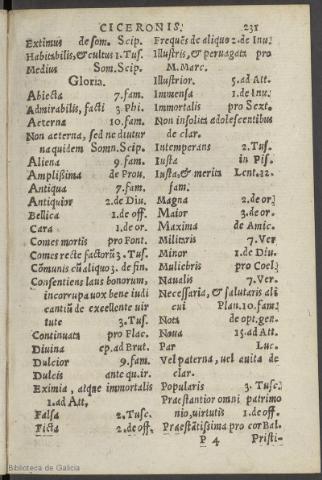 CICERONIS. 231
Extimus de som. Scip.
Habitabilis, & cultus 1. Tus.
Medius Som. Scip.
Gloria.
Abiecta 7. fam.
Admirabilis, facti 3. Phi.
Aeterna 10. fam.
Non aeterna, sed ne diutur
na quidem Somn. Scip.
Aliena 9. fam.
Amplissima de Prou.
Antiqua 7. fam.
Antiquior 2. de Diu.
Bellica 1. de off.
Cara 1. de or.
Comes mortis pro Font.
Comes recte factorũ 3. Tus.
Cõmunis cũ aliquo 3. de fin.
Consentiens laus bonorum,
incorrupta uox bene iudi
cantiũ de excellente uir
tute 3. Tus.
Continuata pro Flac.
Diuina ep. ad Brut.
Dulcior 9. fam.
Dulcis ante qu. ir.
Eximia, atque immortalis
1. ad Att.
Falsa 2. Tusc.
Ficta 2. de off.
Frequẽs de aliquo 2. de Inu.
Illustris, & peruagata pro
M. Marc.
Illustrior. 5. ad Att.
Immensa 1. de Inu.
Immortalis pro Sext.
Non insolita adolescentibus
de clar.
Intemperans 2. Tus.
Iusta in Pis.
Iusta, & merita Lent. 12.
fam.
Magna 2. de or.
Maior 3. de or.
Maxima de Amic.
Militaris 7. Ver.
Minor 1. de Diu.
Muliebris pro Coel.
Naualis 7. Ver.
Necessaria, & salutaris ali
cui Plan. 10. fam.
Nota de opt. gen.
Noua 15. ad Att.
Par Luc.
Vel paterna, uel auita de
clar.
Popularis 3. Tusc.
Praestantior omni patrimo
nio, uirtutis 1. de off.
Praestãtissima pro cor Bal.
P 4 Pristi-
Biblioteca de Galicia